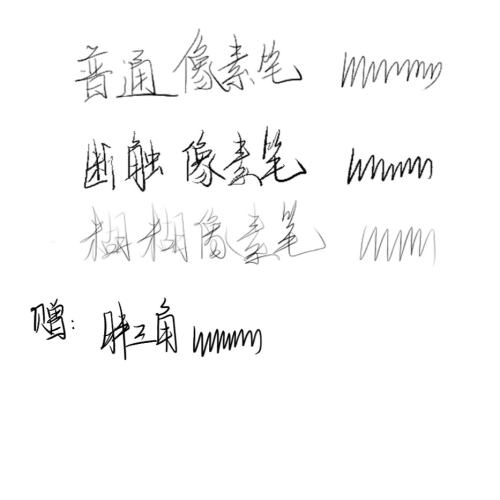 普通像素笔
断触像素笔
糊糊像素笔
赠：胖三角